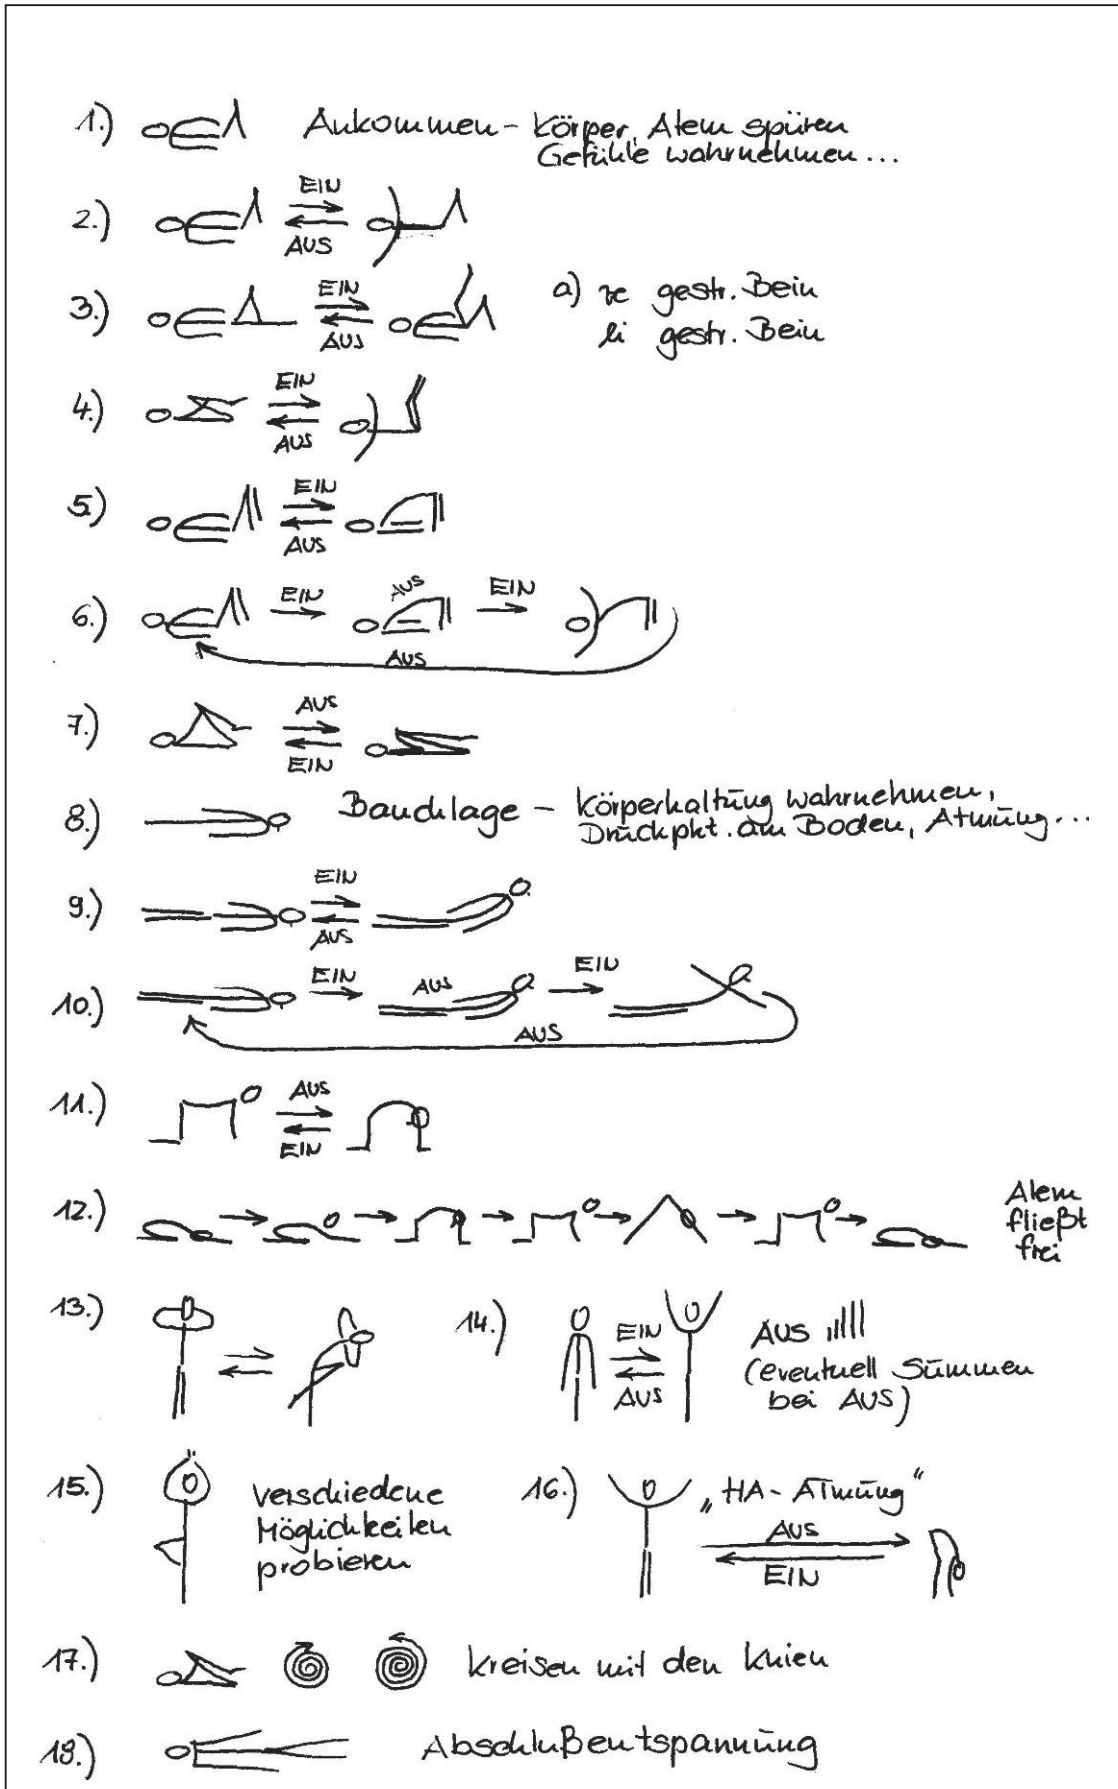 1.) Ankommen - Körper, Atem spüren
Gefühle wahrnehmen...
2.) EIN
AUS
3.) EIN
AUS
a) re gestr. Bein
li gestr. Bein
4.) EIN
AUS
5.) EIN
AUS
6.) EIN AUS EIN
AUS
7.) AUS
EIN
8.) Bauchlage - Körperhaltung wahrnehmen,
Druckpkt. am Boden, Atmung...
9.) EIN
AUS
10.) EIN AUS EIN
AUS
11.) AUS
EIN
12.) Atem
fließt
frei
13.)
14.) EIN
AUS
AUS
(eventuell Summen
bei AUS)
15.) verschiedene
Möglichkeiten
probieren
16.) „HA-ATmung"
AUS
EIN
17.) kreisen mit den Knien
18.) Abschlußentspannung